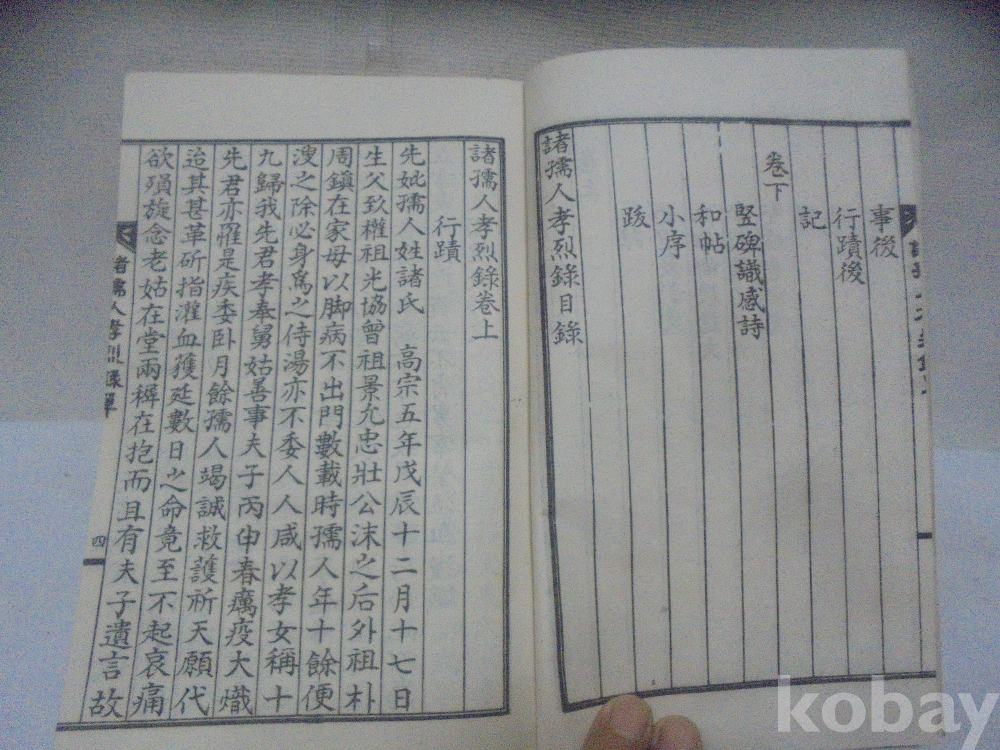 事後
行蹟後
記
卷下
竪碑識感詩
和帖
小序
跋
諸孺人孝烈錄目錄
諸孺人孝烈錄卷上
行蹟
先妣孺人姓諸氏 高宗五年戊辰十二月十七日
生父致權祖光協曾祖景允忠壯公沫之后外祖朴
周鎭在家母以脚病不出門數載時孺人年十餘便
溲之除必身爲之侍湯亦不委人人咸以孝女稱十
九歸我先君孝奉舅姑善事夫子丙申春癘疫大熾
先君亦罹是疾委卧月餘孺人竭誠救護祈天願代
迨其甚革斫指灌血獲延數日之命竟至不起哀痛
欲殞旋念老姑在堂兩穉在抱而且有夫子遺言故
諸孺人孝烈錄單
四
kobay